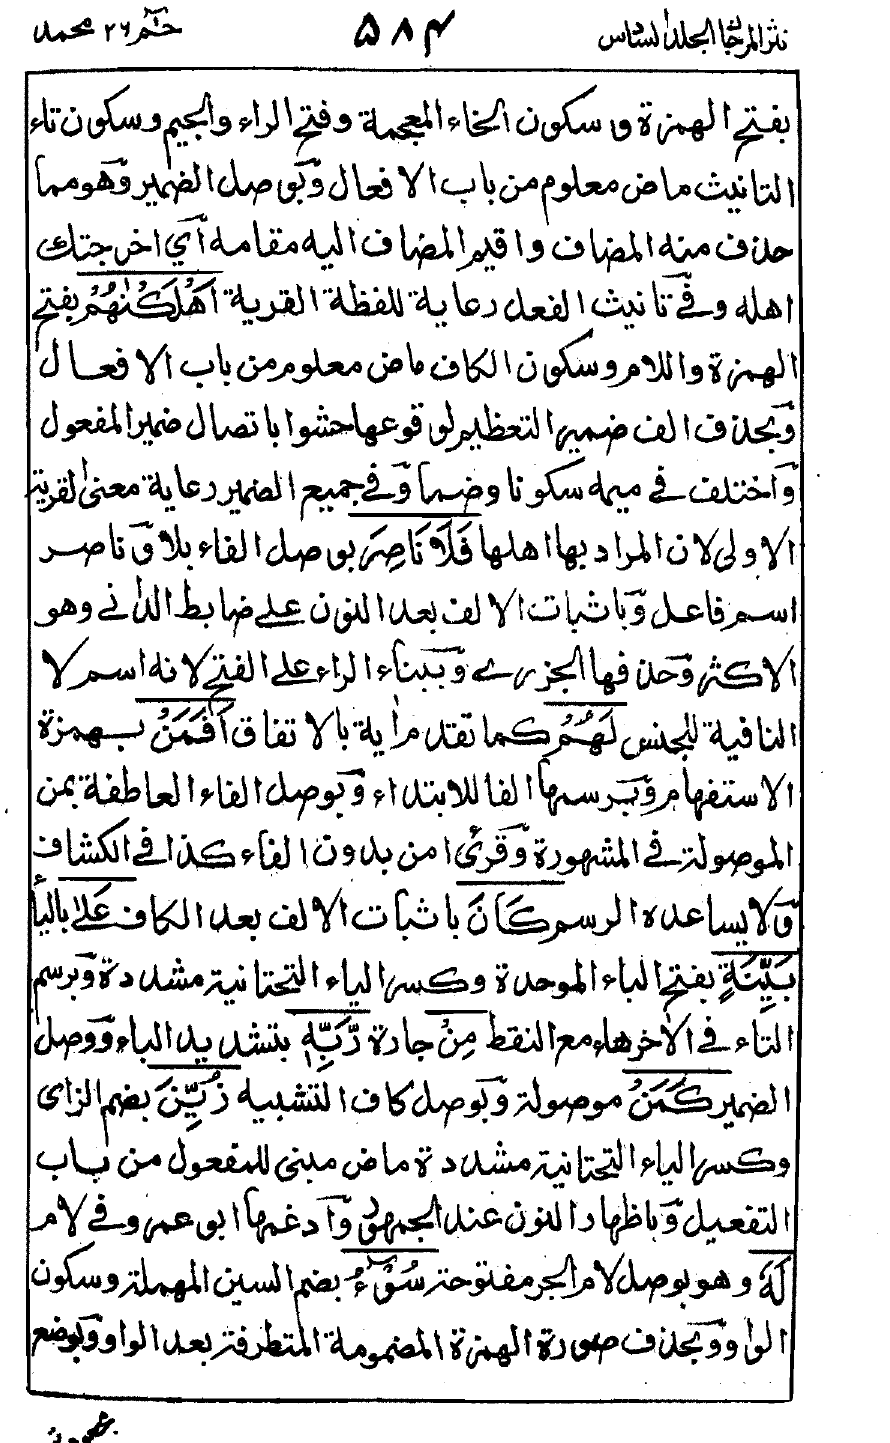 نثر المرجان المجلد السادس ۵۸۴ حٰم ۲۶ محمد
بفتح الهمزة و سكون الخاء المعجمة وفتح الراء والجيم وسكون تاء
التانيث ماض معلوم من باب الافعال وبوصل الضمير وهو مما
حذف منه المضاف واقيم المضاف اليه مقامه اي اخرجتك
اهله وفي تانيث الفعل رعاية للفظة القرية اَهْلَكْنٰهُمْ بفتح
الهمزة واللام وسكون الكاف ماض معلوم من باب الافعال
وبحذف الف ضمير التعظيم لوقوعها حشوا باتصال ضمير المفعول
واختلف في ميمه سكونا وضما وفي جميع الضمير رعاية معنى القرية
الاولى لان المراد بها اهلها فَلَا نَاصِرَ بوصل الفاء بلا وناصر
اسم فاعل وباثبات الالف بعد النون على ضابط الداني وهو
الاكثر وحذفها الجزري وببناء الراء على الفتح لانه اسم لا
النافية للجنس لَهُمْ كما تقدم راية بالاتفاق اَفَمَنْ بهمزة
الاستفهام وبرسمها الفا للابتداء وبوصل الفاء العاطفة بمن
الموصولة في المشهورة وقرئ امن بدون الفاء كذا في الكشاف
ولا يساعده الرسم كَانَ باثبات الالف بعد الكاف عَلٰى بالياء
بَيِّنَةٍ بفتح الباء الموحدة وكسر الياء التحتانية مشددة وبرسم
التاء في الاخر هاء مع النقط مِنْ جادة رَّبِّهٖ بتشديد الباء ووصل
الضمير كَمَنْ موصولة وبوصل كاف التشبيه زُيِّنَ بضم الزاى
وكسر الياء التحتانية مشددة ماض مبنى للمفعول من باب
التفعيل وباظهار النون عند الجمهور وادغمها ابو عمرو في لام
لَهٗ وهو بوصل لام الجر مفتوحة سُوْٓءُ بضم السين المهملة وسكون
الواو وبحذف صورة الهمزة المضمومة المتطرفة بعد الواو وبوضع